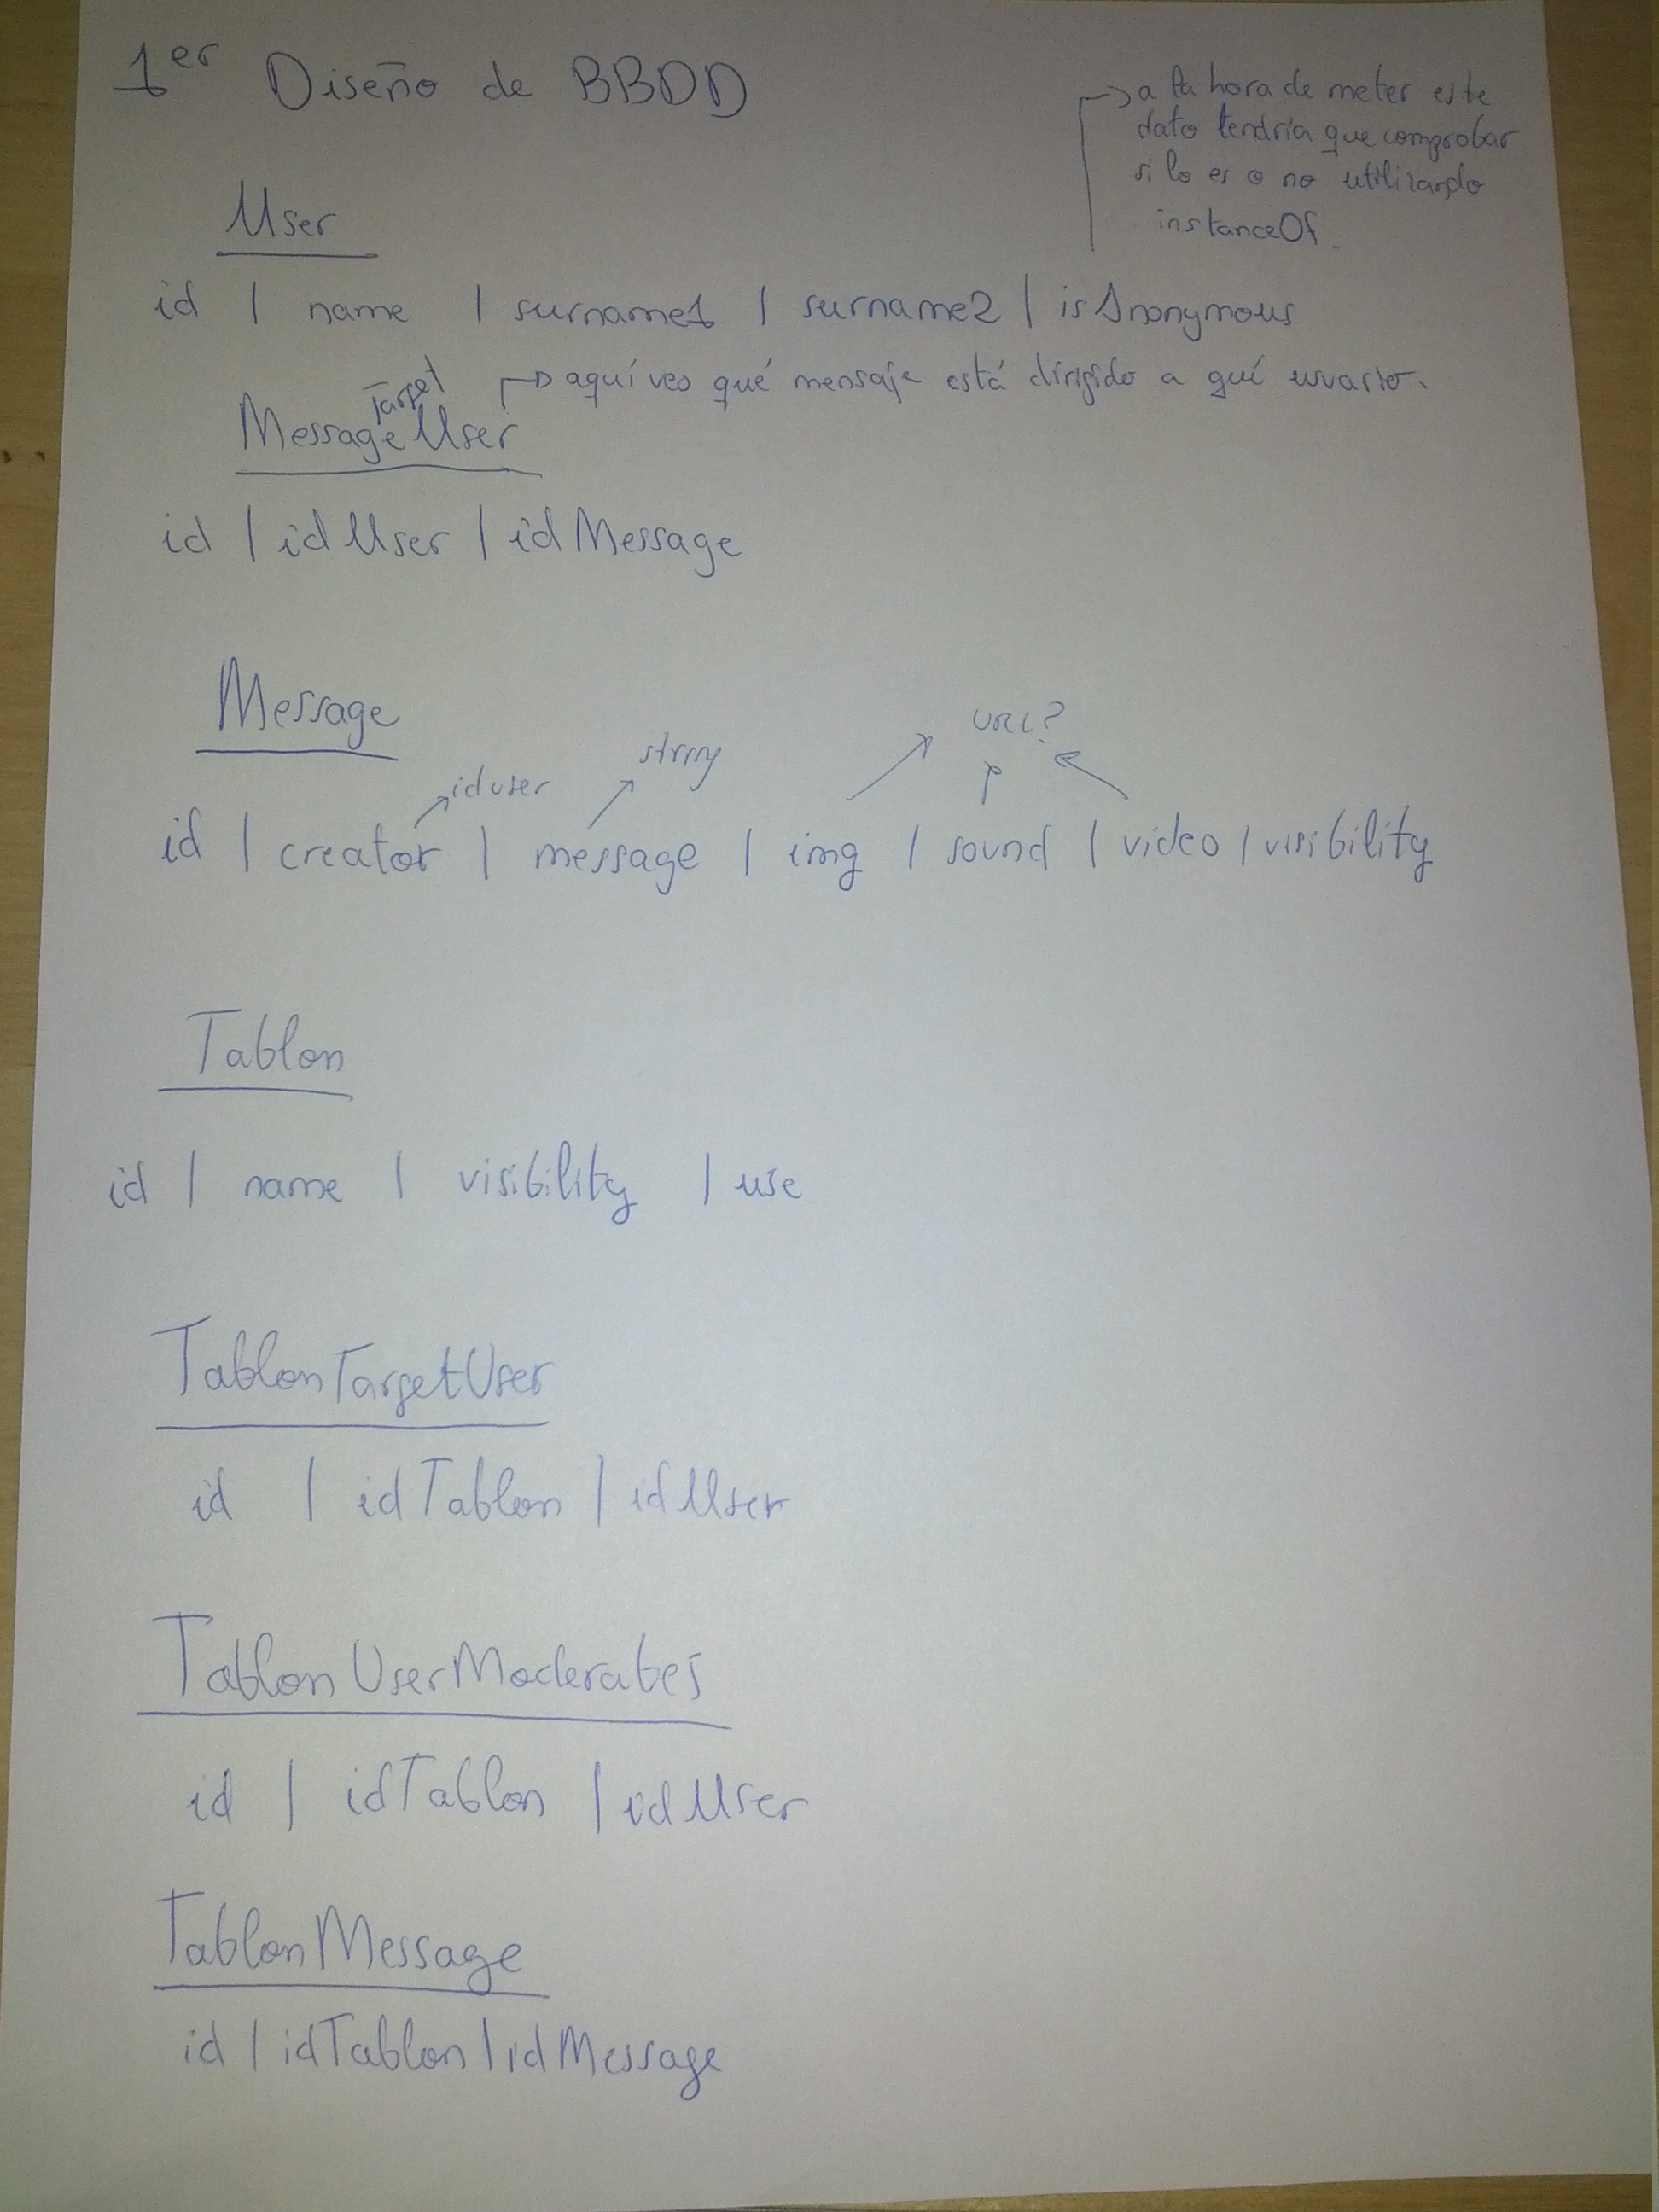 1er Diseño de BBDD
a la hora de meter este
dato tendría que comprobar
si lo es o no utilizando
instanceOf.
User
id | name | surname1 | surname2 | isAnonymous
aquí veo qué mensaje está dirigido a qué usuario.
Target
MessageUser
id | idUser | idMessage
Message
URL?
string
iduser
id | creator | message | img | sound | video | visibility
Tablon
id | name | visibility | use
TablonTargetUser
id | idTablon | idUser
TablonUserModerates
id | idTablon | idUser
TablonMessage
id | idTablon | idMessage